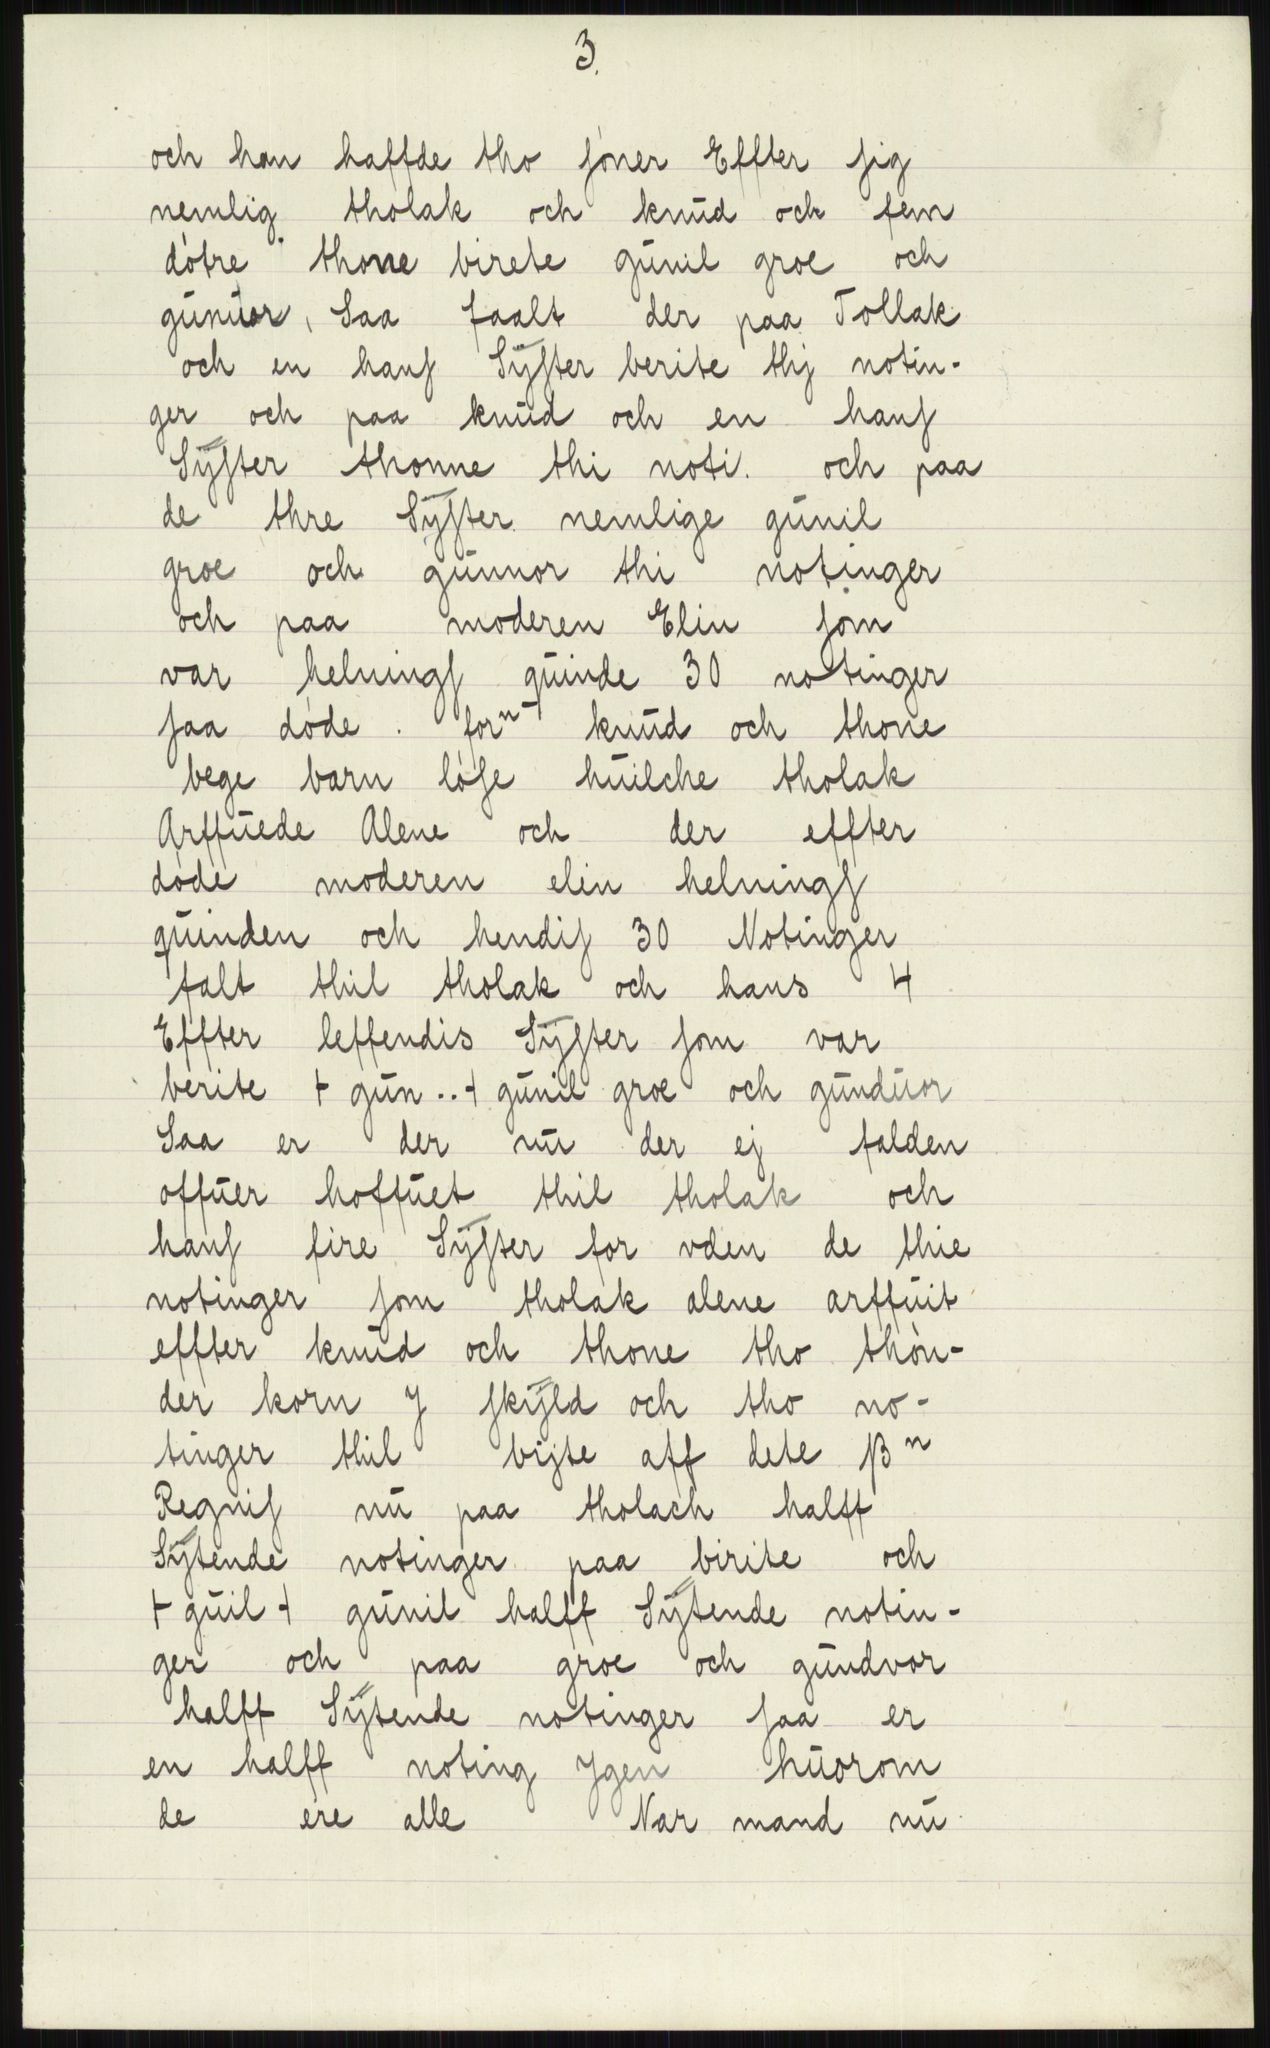 3.
och han haffde tho ſóner Effter ſig
nemlig tholak och knūd och fem
dótre thone birete gūnil groe och
gūnūor, Saa faalt der paa Tollak
och en hanſ Sÿſter berite thj notin-
ger och paa knūd och en hanſ
Sÿſter thonne thi noti. och paa
de thre Sÿſter nemlige gūnil
groe och gūnnor thi notinger
och paa moderen Elin ſom
var helningſ qūinde 30 notinger
ſaa dóde. forⁿ knūd och thone
bege barn lóſe hūilche tholak
Arffūede Alene och der effter
dóde moderen elin helningſ
qūinden och hendiſ 30 Notinger
falt thil tholak och hans 4
Effter leffendis Sÿſter ſom var
berite + gūn..+ gūnil groe och gūndūor
Saa er der nū der ej falden
offūer hoffūet thil tholak och
hanſ fire Sÿſter for vden de thie
notinger ſom tholak alene arffūit
effter knūd och thone tho thón-
der korn J ſkÿld och tho no-
tinger thil bijte aff dete ßⁿ
Regniſ nū paa tholach halff
Sÿtende notinger paa birite och
+ gūil + gūnil halff Sÿtende notin-
ger och paa groe och gūndvor
halff Sÿtende notinger ſaa er
en halff noting Jgen hūorom
de ere alle Nar mand nū